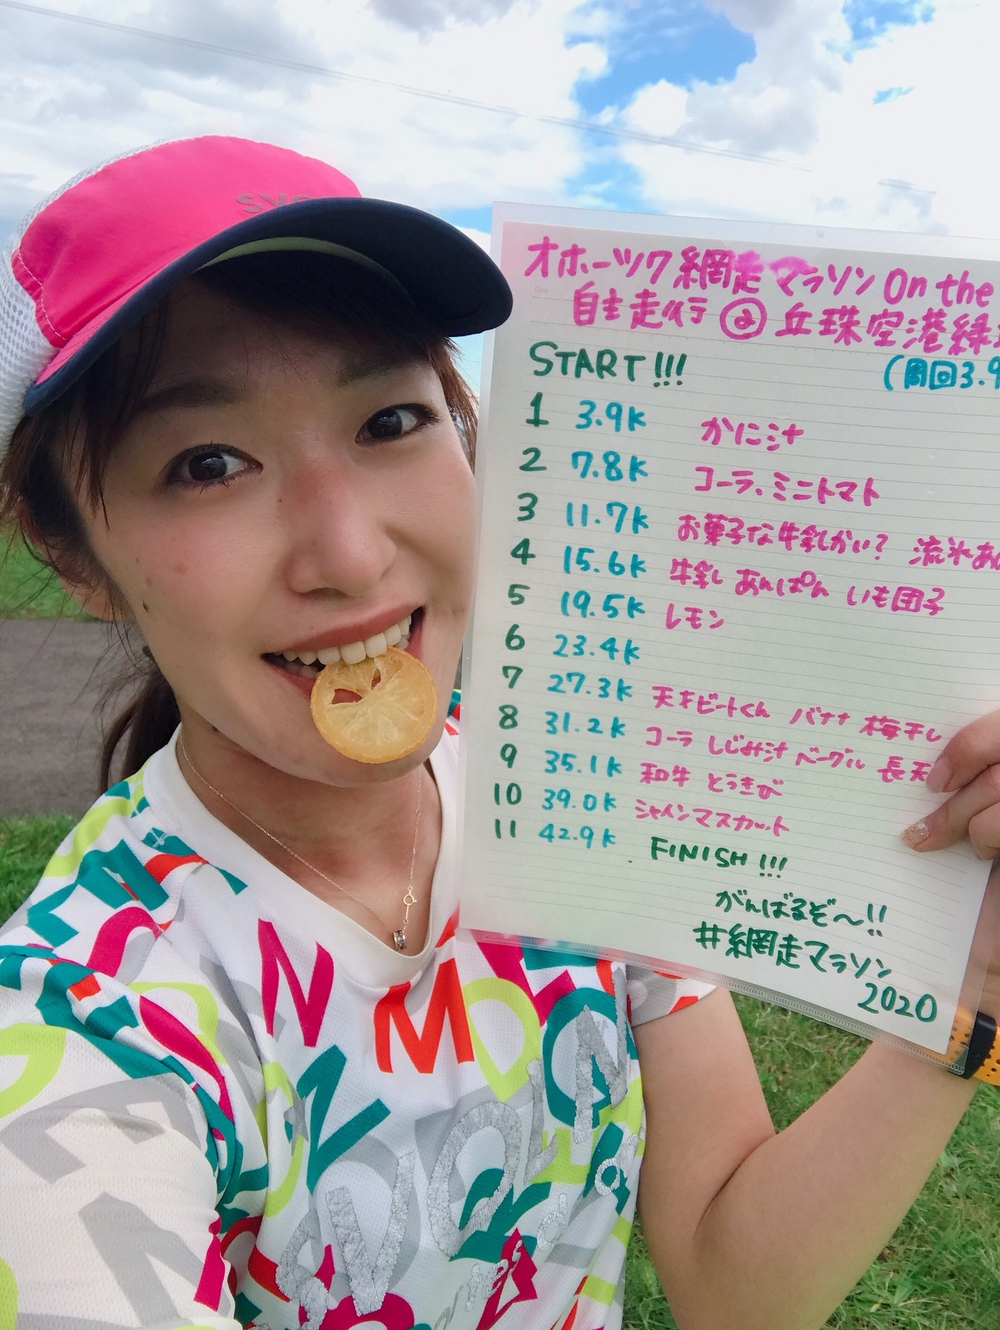 オホーツク網走マラソン On the
自主走行@丘珠空港緑
(周回3.9
START!!!
1 3.9K かに汁
2 7.8K コーラ、ミニトマト
3 11.7K お菓子な牛乳かい? 流氷あ
4 15.6K 牛乳 あんぱん いも団子
5 19.5K レモン
6 23.4K
7 27.3K 天才ビートくん バナナ 梅干し
8 31.2K コーラ しじみ汁 ベーグル 長天
9 35.1K 和牛 とうきび
10 39.0K シャインマスカット
11 42.9K FINISH!!!
がんばるぞ〜!!
#網走マラソン
2020